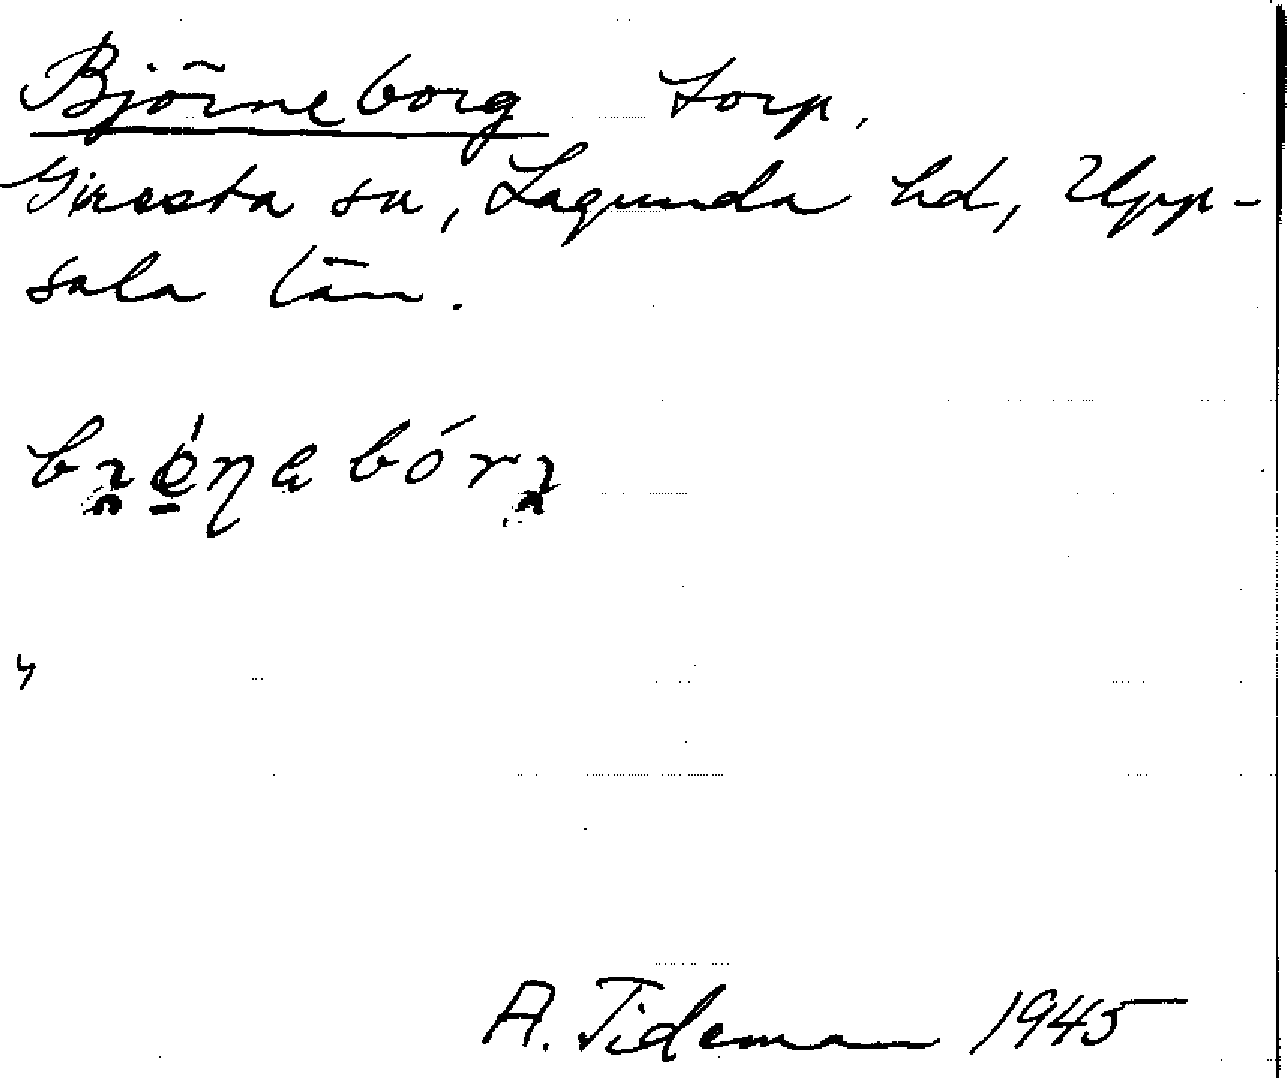 Björneborg torp,
Giressta sn, Lagunda hd, Upp-
sala län.
A. Tideman 1945